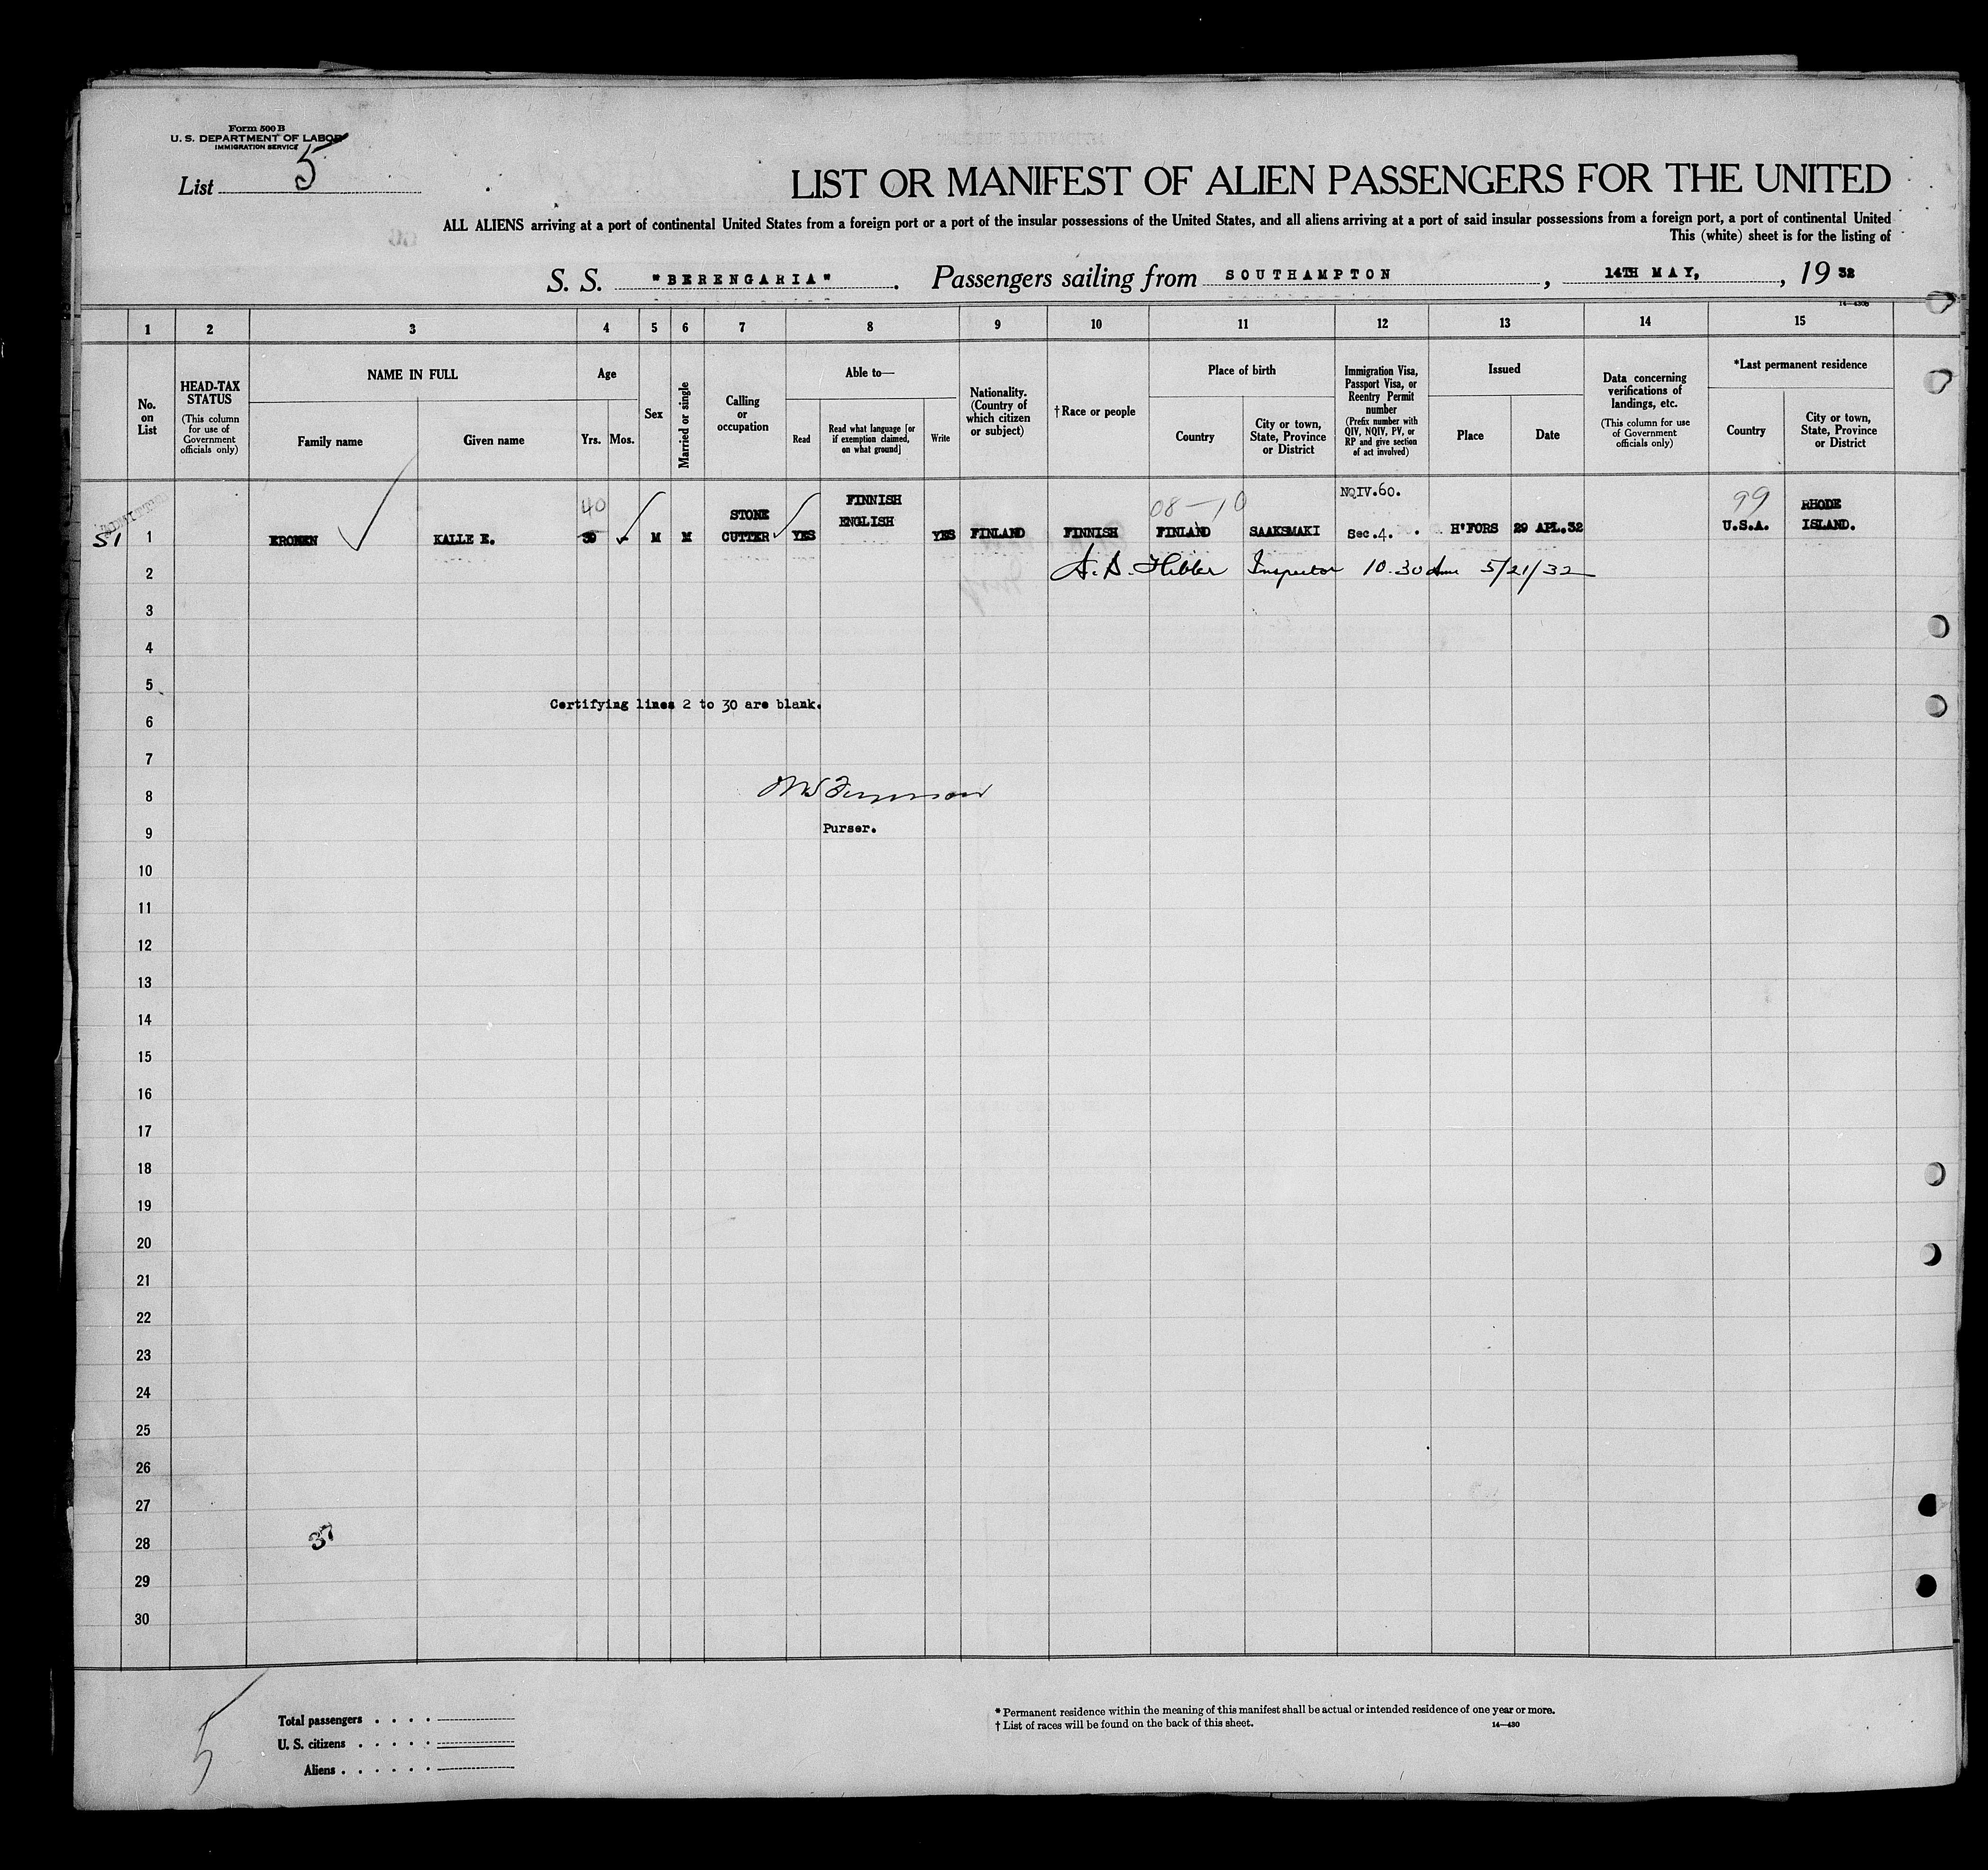 Form 500 B
U. S. DEPARTMENT OF LABOR
IMMIGRATION SERVICE
List 5
LIST OR MANIFEST OF ALIEN PASSENGERS FOR THE UNITED
ALL ALIENS arriving at a port of continental United States from a foreign port or a port of the insular possessions of the United States, and all aliens arriving at a port of said insular possessions from a foreign port, a port of continental United
This (white) sheet is for the listing of
S. S. "BERENGARIA". Passengers sailing from SOUTHAMPTON, 14TH MAY, 1932
1 2 3 4 5 6 7 8 9 10 11 12 13 14 15
No. on List
HEAD-TAX STATUS
(This column for use of Government officials only)
NAME IN FULL
Family name
Given name
Age
Yrs. Mos.
Sex
Married or single
Calling or occupation
Able to—
Read
Read what language [or if exemption claimed, on what ground]
Write
Nationality. (Country of which citizen or subject)
†Race or people
Place of birth
Country
City or town, State, Province or District
Immigration Visa, Passport Visa, or Reentry Permit number
(Prefix number with QIV, NQIV, PV, or RP and give section of act involved)
Issued
Place
Date
Data concerning verifications of landings, etc.
(This column for use of Government officials only)
*Last permanent residence
Country
City or town, State, Province or District
40 STONE FINNISH 08-10 NQIV.60. 99 RHODE
1 KRONEN KALLE E. 39 M M CUTTER YES ENGLISH YES FINLAND FINNISH FINLAND SAAKSMAKI Sec.4. H'FORS 29 APL.32 U.S.A. ISLAND.
2 Inspector 10.30 5/21/32
3
4
5
Certifying lines 2 to 30 are blank.
6
7
8
9 Purser.
10
11
12
13
14
15
16
17
18
19
20
21
22
23
24
25
26
27
28 37
29
30
5
Total passengers . . . .
U. S. citizens . . . . .
Aliens . . . . . .
* Permanent residence within the meaning of this manifest shall be actual or intended residence of one year or more.
† List of races will be found on the back of this sheet.
14—430